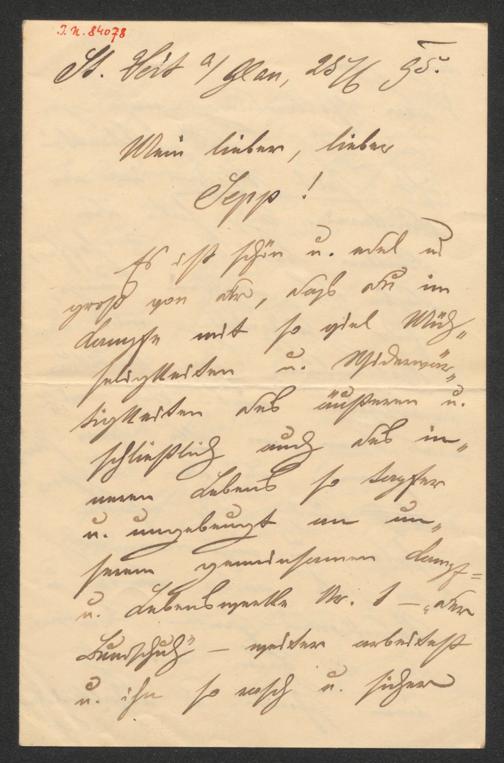 I. N. 84078
St. Veit a/ Glan, 25/6 95.
Mein lieber, lieber
Sepp!
Es ist schön u. edel u.
groß von dir, daß du im
Kampfe mit so viel Müh„
seligkeiten u. Widerwär„
tigkeiten des äußeren u.
schließlich auch des in„
neren Lebens so tapfer
u. ungebeugt an un„
serem gemeinsamen Kampf=
u. Lebenswerke Nr. 1 – „der
Bundschuh" – weiter arbeitest
u. ihn so rasch u. sicher